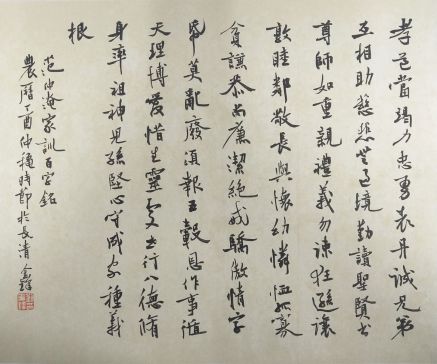 孝道當竭力忠勇表丹誠兄弟
互相助慈悲無過境勤讀聖賢書
尊師如重親禮義勿疎狂遜讓
敦睦鄰敬長與懷幼憐恤孤寡
貧謙恭尚廉潔絕戒驕傲情字
帋莫亂廢須報五穀恩作事循
天理博愛惜生靈處世行八德脩
身率祖神兒孫堅心守成家種善
根
范仲淹家訓百字銘
農曆丁酉仲穐時節於長清